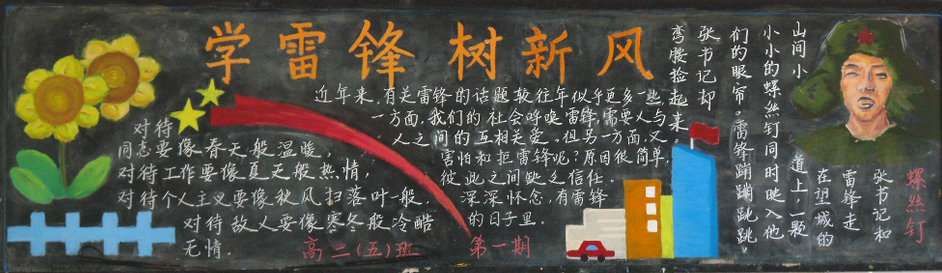 学雷锋 树新风
对待
同志要像春天般温暖，
对待工作要像夏天般热情，
对待个人主义要像秋风扫落叶一般，
对待敌人要像寒冬般冷酷
无情.
近年来，有关雷锋的话题较往年似乎更多一些，
一方面，我们的社会呼唤雷锋，需要人与
人之间的互相关爱。但另一方面，又
害怕和拒雷锋呢？原因很简单，
彼此之间缺乏信任。
深深怀念，有雷锋
的日子里.
高二（五）班
第一期
螺丝钉
张书记和
雷锋走
在望城的
道上，一颗
山间小
小小的螺丝钉同时映入他
们的眼帘。雷锋蹦蹦跳跳
张书记却
弯腰捡
起
来